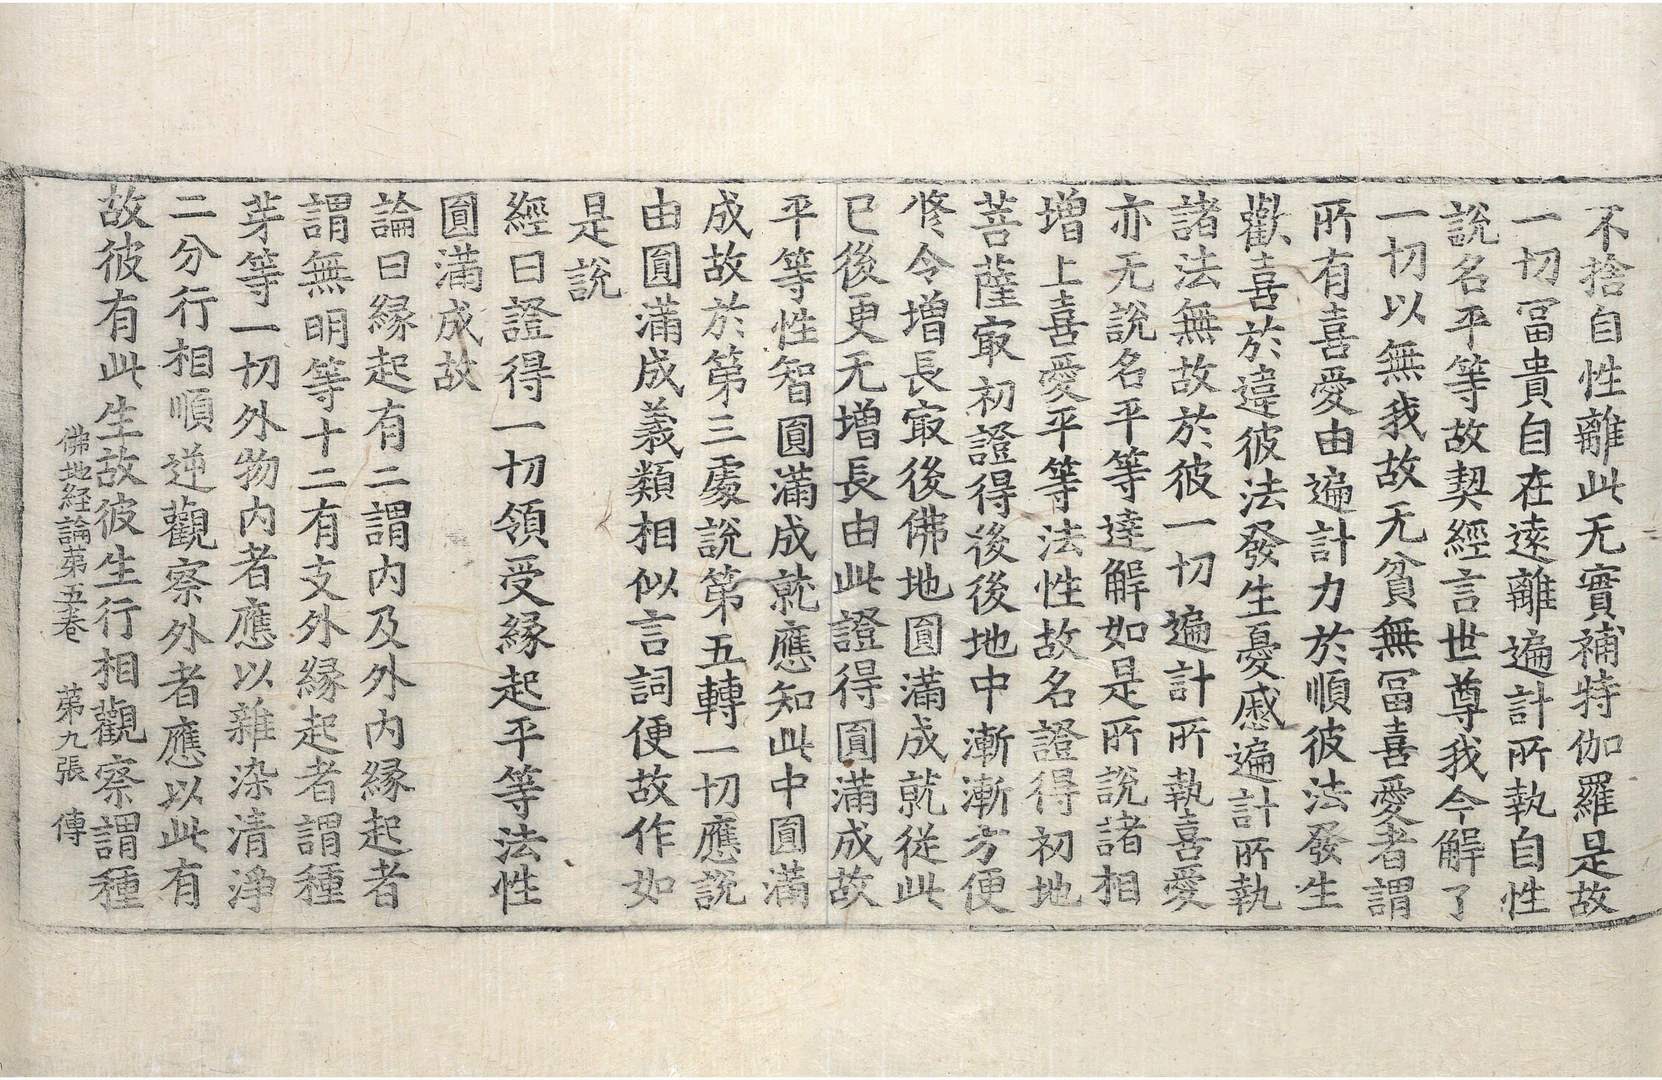 不捨自性離此无實補特伽羅是故
一切冨貴自在遠離遍計所執自性
說名平等故契經言世尊我今解了
一切以無我故无貧無冨喜愛者謂
所有喜愛由遍計力於順彼法發生
歡喜於違彼法發生憂慼遍計所執
諸法無故於彼一切遍計所執喜愛
亦无說名平等達解如是所說諸相
增上喜愛平等法性故名證得初地
菩薩㝡初證得後後地中漸漸方便
修令增長㝡後佛地圎滿成就從此
已後更无增長由此證得圎滿成故
平等性智圎滿成就應知此中圎滿
成故於第三處說第五轉一切應說
由圎滿成義類相似言詞便故作如
是說
經曰證得一切領受縁起平等法性
圎滿成故
論曰縁起有二謂內及外內縁起者
謂無明等十二有支外縁起者謂種
芽等一切外物內者應以雜染清淨
二分行相順逆觀察外者應以此有
故彼有此生故彼生行相觀察謂種
佛地経論第五卷 第九張 傳